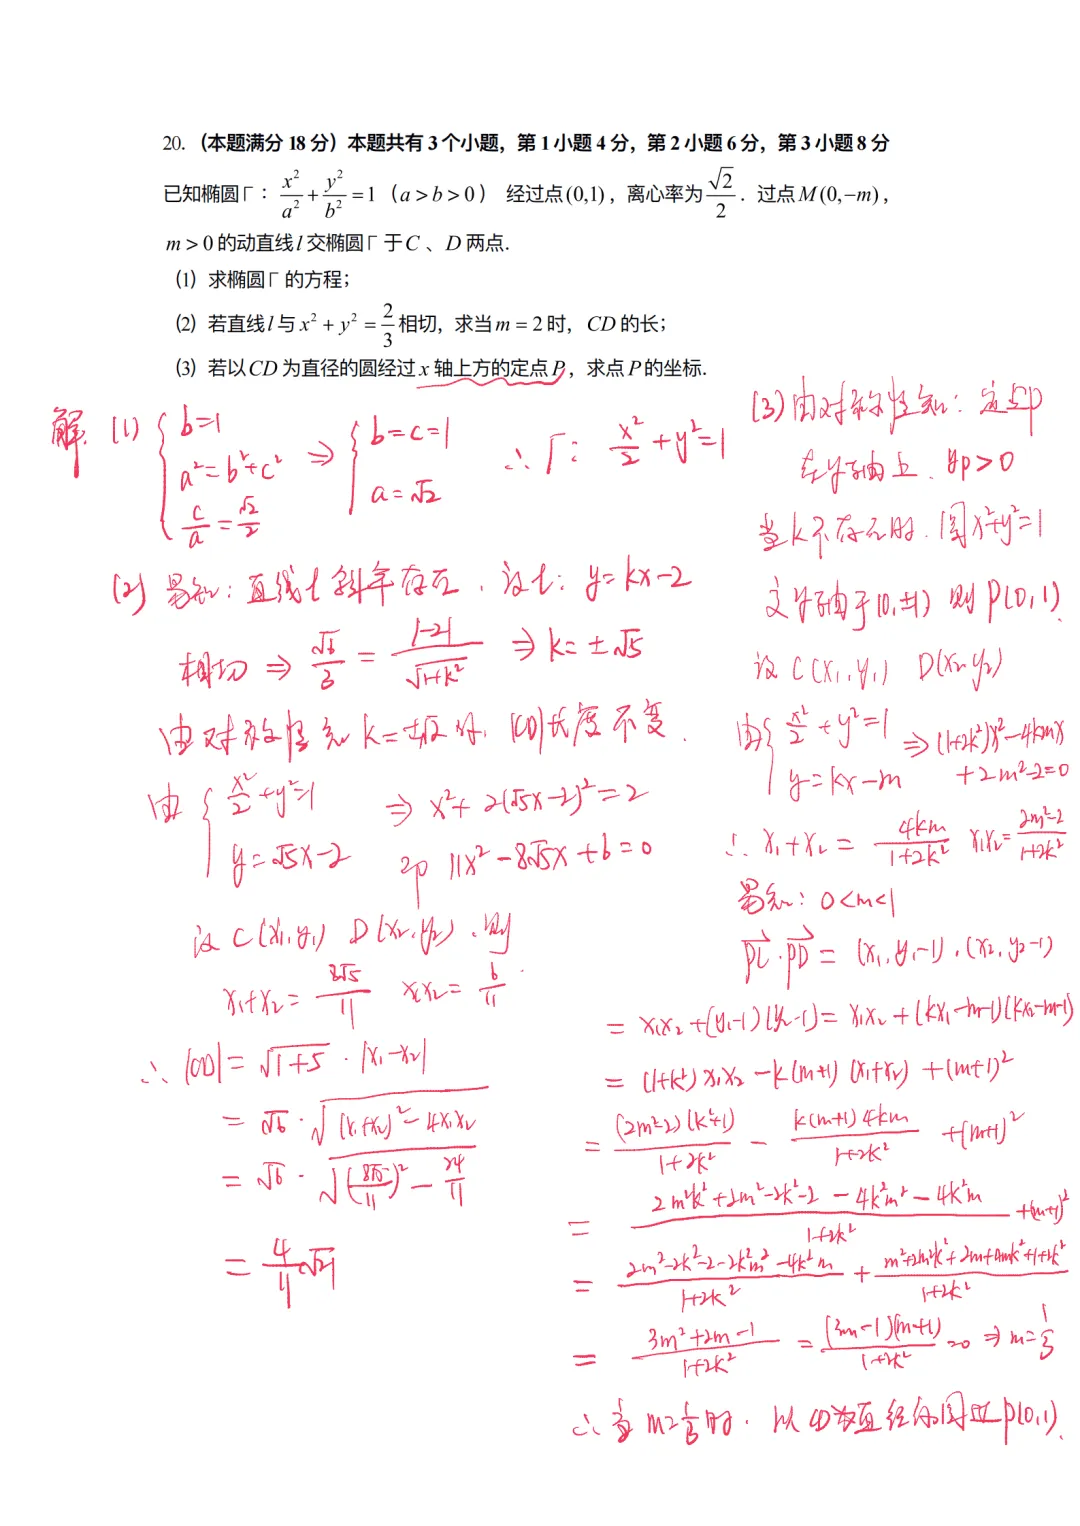 20. （本题满分 18 分）本题共有 3 个小题，第 1 小题 4 分，第 2 小题 6 分，第 3 小题 8 分
已知椭圆Γ： x²/a² + y²/b² = 1（a > b > 0） 经过点(0,1)，离心率为 √2/2 . 过点 M(0,−m)，
m > 0 的动直线 l 交椭圆Γ于 C 、D 两点.
(1) 求椭圆Γ的方程；
(2) 若直线 l 与 x² + y² = 2/3 相切，求当 m = 2 时，CD 的长；
(3) 若以 CD 为直径的圆经过 x 轴上方的定点 P，求点 P 的坐标.
解. (1) { b=1
a²=b²+c²
c/a = √2/2
⇒ { b=c=1
a=√2
∴ Γ: x²/2 + y²=1
(2) 易知: 直线l斜率存在. 设l: y=kx-2
相切 ⇒ √6/3 = |-2|/√(1+k²) ⇒ k=±√5
由对称性知 k=±√5时, |CD|长度不变.
由 { x²/2+y²=1
y=√5x-2
⇒ x²+2(√5x-2)²=2
即 11x²-8√5x+6=0
设 C(x₁,y₁) D(x₂,y₂). 则
x₁+x₂= 8√5/11 x₁x₂= 6/11
∴ |CD|= √(1+5) · |x₁-x₂|
= √6 · √((x₁+x₂)²-4x₁x₂)
= √6 · √((8√5/11)² - 24/11)
= 4/11 √21
(3) 由对称性知: 定点P
在y轴上. yp>0
当k不存在时. 圆x²+y²=1
交y轴于(0,±1) 则P(0,1).
设 C(x₁,y₁) D(x₂,y₂)
由 { x²/2+y²=1
y=kx-m
⇒ (1+2k²)x²-4kmx
+2m²-2=0
∴ x₁+x₂= 4km/(1+2k²) x₁x₂= (2m²-2)/(1+2k²)
易知: 0<m<1
PC·PD = (x₁,y₁-1)·(x₂,y₂-1)
= x₁x₂+(y₁-1)(y₂-1)= x₁x₂+(kx₁-m-1)(kx₂-m-1)
= (1+k²)x₁x₂-k(m+1)(x₁+x₂)+(m+1)²
= (2m²-2)(k²+1)/(1+2k²) - k(m+1)4km/(1+2k²) +(m+1)²
= (2m²k²+2m²-2k²-2-4k²m²-4k²m)/(1+2k²) +(m+1)²
= (2m²-2k²-2-2k²m²-4k²m)/(1+2k²) + (m²+2m²k²+2m+4mk²+1+2k²)/(1+2k²)
= (3m²+2m-1)/(1+2k²) = (3m-1)(m+1)/(1+2k²) =0 ⇒ m=1/3
∴ 当 m=1/3 时. 以CD为直径的圆过P(0,1).